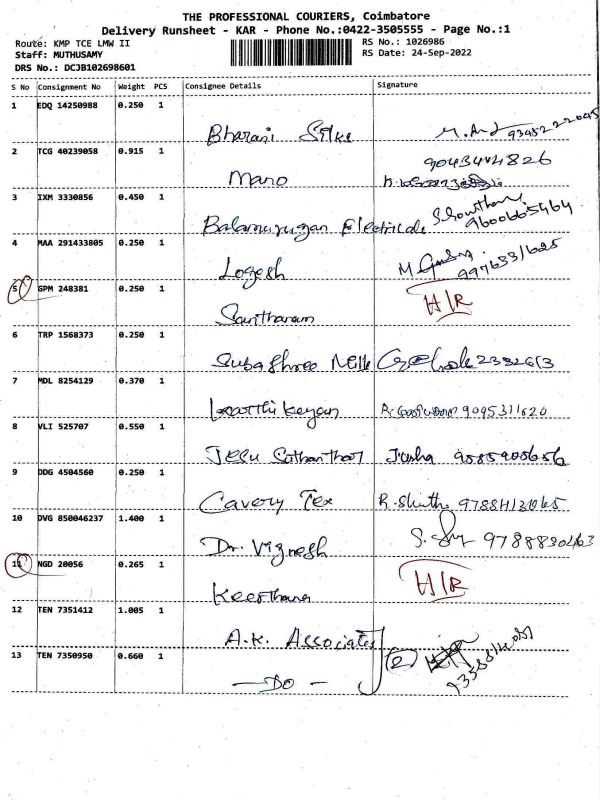 THE PROFESSIONAL COURIERS, Coimbatore
Delivery Runsheet - KAR - Phone No.:0422-3505555 - Page No.:1
Route: KMP TCE LMW II
RS No.: 1026986
Staff: MUTHUSAMY
RS Date: 24-Sep-2022
DRS No.: DCJB102698601
S No Consignment No Weight PCS Consignee Details Signature
1 EDQ 14250988 0.250 1
Bharani Silks
2 TCG 40239058 0.915 1
9043444826
Mano
3 IXM 3330856 0.450 1
Balamurugan Electricals 9600665464
4 MAA 291433805 0.250 1
Logesh
5 GPM 248381 0.250 1
H/R
Santharam
6 TRP 1568373 0.250 1
Subashree Mills
7 MDL 8254129 0.370 1
Karthikeyan
8 VLI 525707 0.550 1
Jesu
9 DDG 4504560 0.250 1
Cavery Tex 9788413065
10 DVG 850046237 1.400 1
Dr. Vignesh
11 NGD 20056 0.265 1
H/R
Keerthana
12 TEN 7351412 1.005 1
A.K. Associates
13 TEN 7350950 0.660 1
2
— DO —